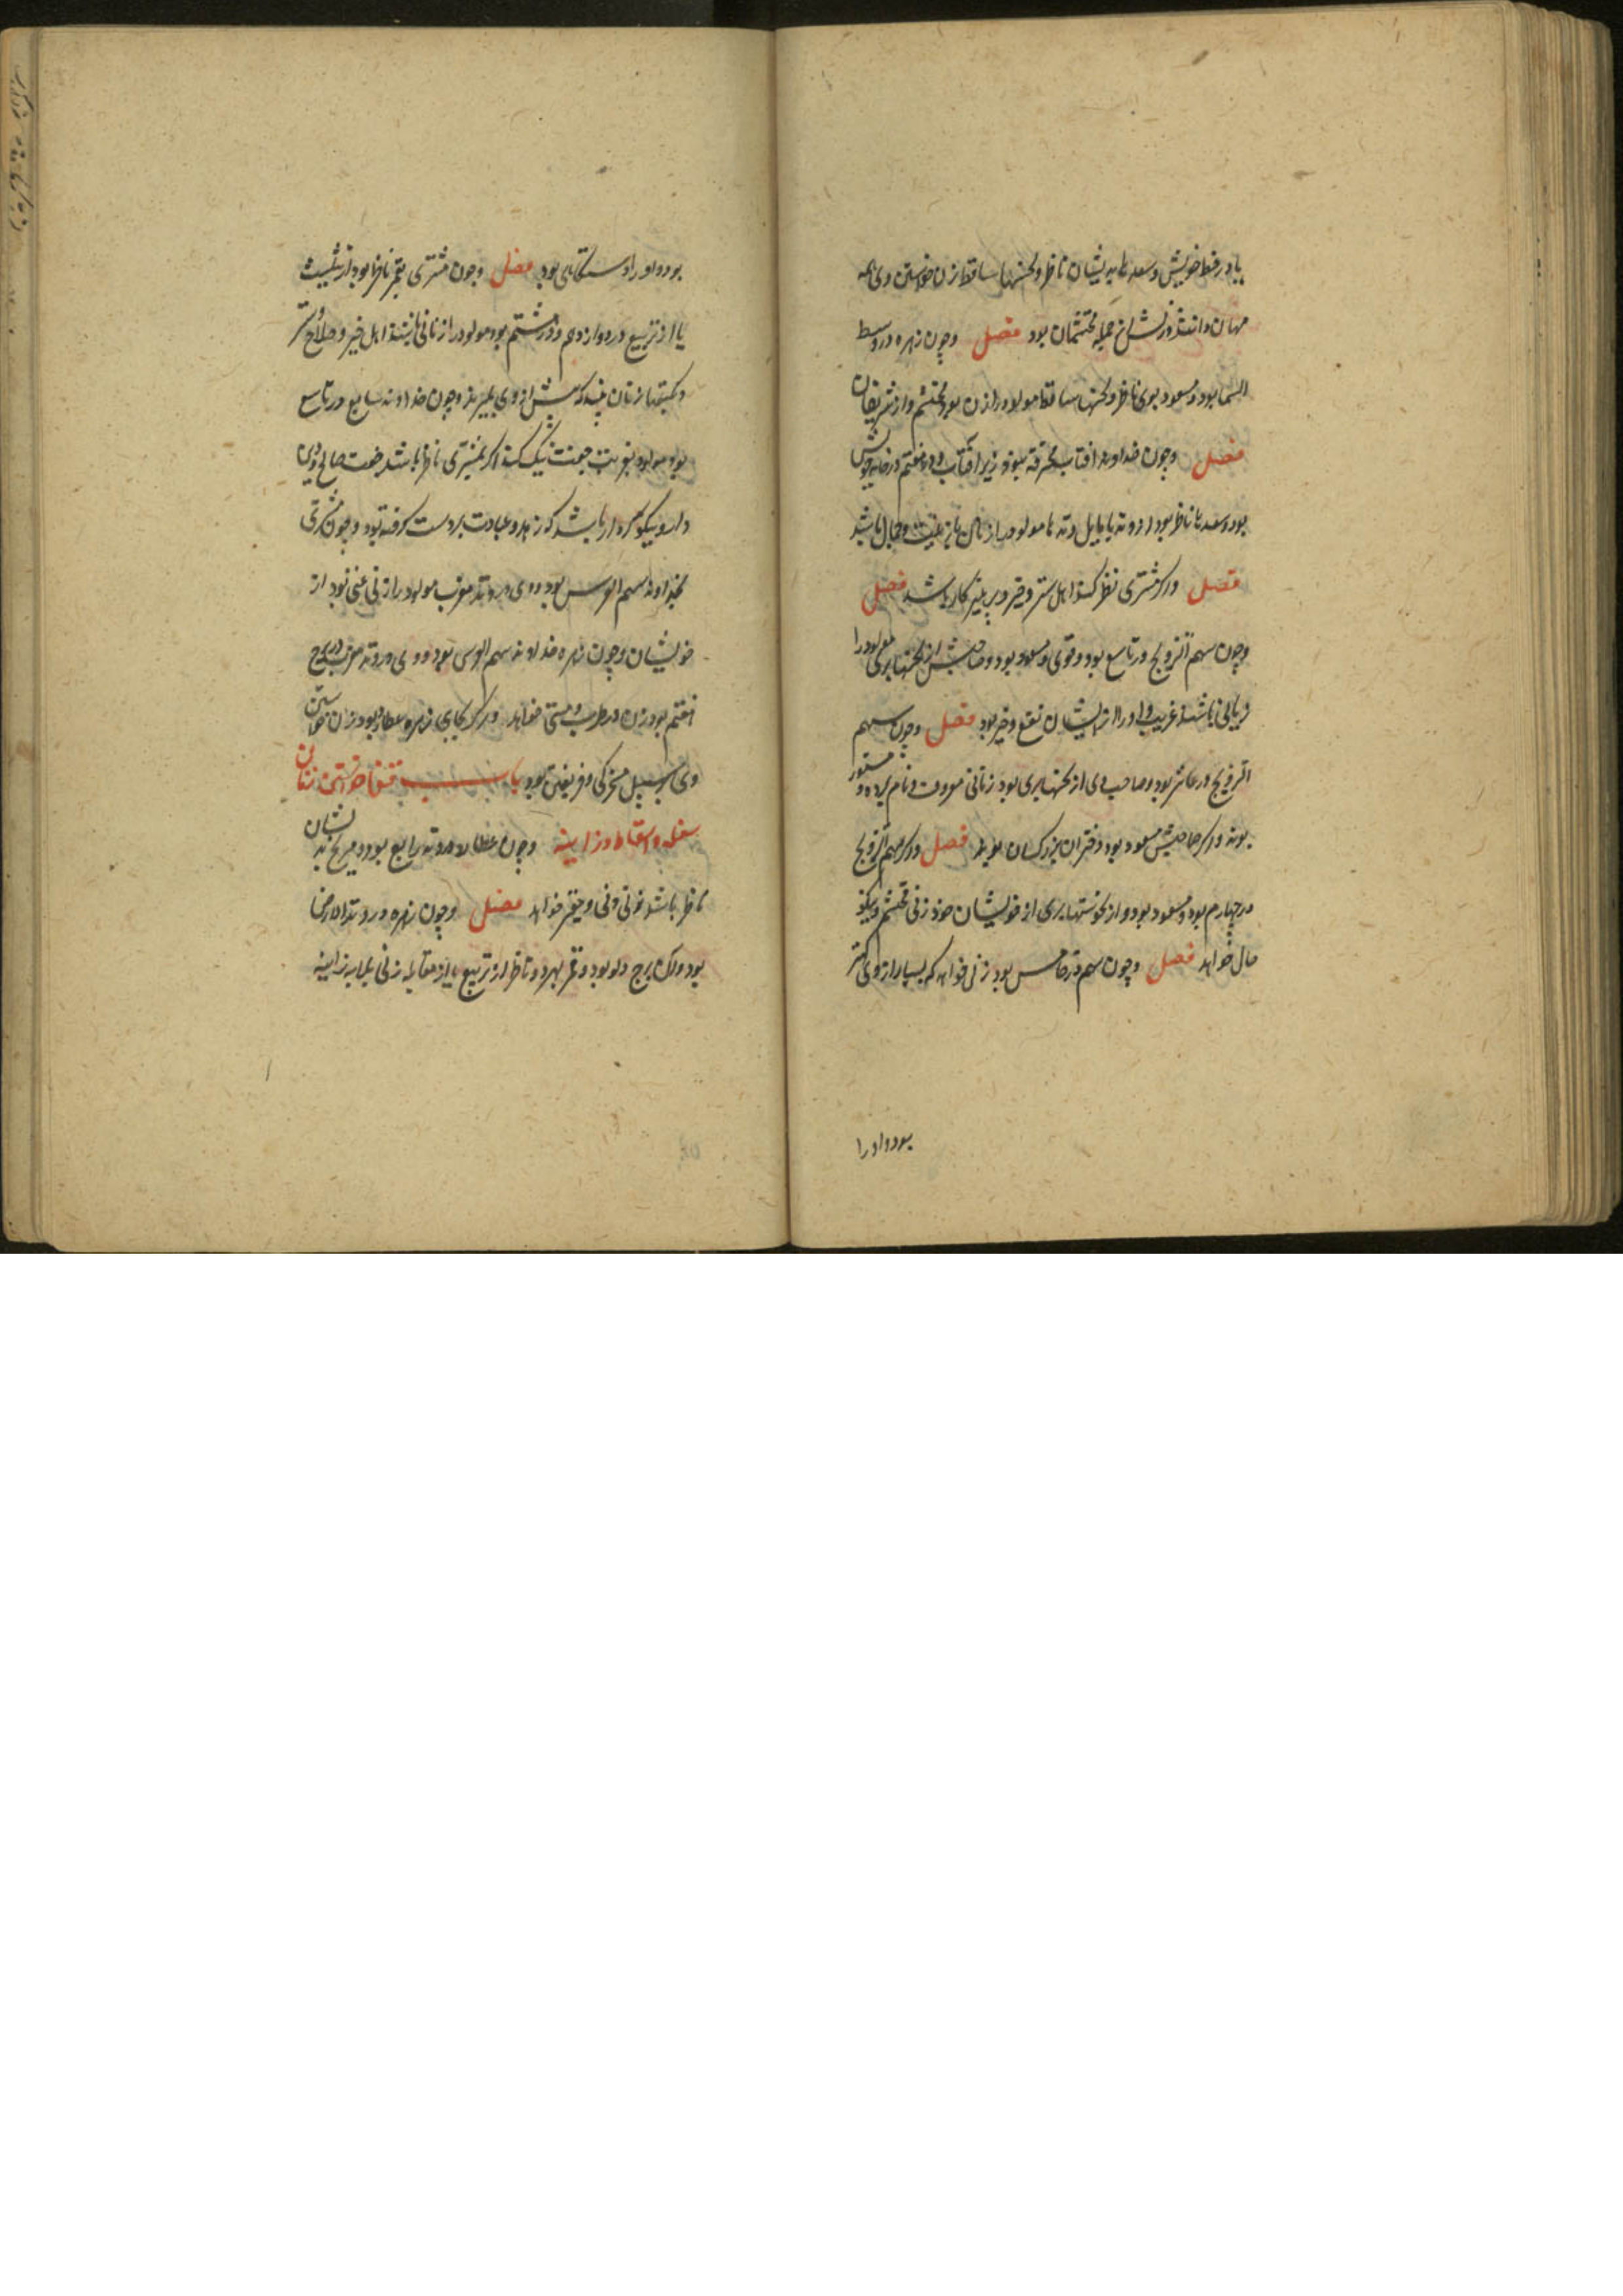 یا در خط خویش و سعدها بدیشان ناظر و نحسها ساقط زن خواستن وی همه
مهان دانند و زنش از جمله محتشمان بود فصل وچون زهره در وسط
السما بود و مسعود بوی ناظر و نحسها ساقط مولود را زن بود محتشم و از شریفان
فصل وچون خداوند آفتاب محرقه نبود زیر آفتاب و در هفتم در خانه خویش
بود و سعد با ناظر بود در وتد یا مایل وتد ها مولود را زنان با زینت و جمال باشد
فصل و اگر مشتری نظر کند اهل ستر و خیر و پرهیزکار باشد فصل
وچون سهم التزویج در تاسع بود و قوی و مسعود بود و صاحبش از نحسها بری مولود را
زنانی باشند غریب و او را از ایشان نفع و خیر بود فصل وچون سهم
التزویج در عاشر بود و صاحب وی از نحسها بری بود زنانی معروف و نام برده و مستور
بوند و اگر صاحبش مسعود بود دختران بزرگان بوند فصل و اگر سهم التزویج
در چهارم بود و مسعود بود و از نحوستها بری از خویشان خود زنی محتشم و نیکو
حال خواهد فصل وچون سهم در خامس بود زنی خواهد که بسیار از وی کمتر
بود و او را
بود و او را دستگاهی بود فصل وچون مشتری بقمر ناظر بود از تثلیث
یا از تربیع در دوازدهم و در هشتم بود مولود را زنانی باشند اهل خیر و صلاح و ستر
وچون خداوند سابع در تاسع
بود مولود بغربت جفت نیک کند اگر مشتری ناظر باشد جفت صالح و دین
دار و نیکو کردار باشد که زهد و عبادت بر دست گرفته بود وچون مشتری
خداوند سهم العرس بود و وی در وتد مغرب مولود را زنی غنی بود از
خویشان وچون زهره خداوند سهم العرس بود و وی در وتد مغرب در برج
هفتم بود زن مطرب و مستی خواهد و اگر بجای زهره عطارد بود زن خواستن
وی بر سبیل مسخرگی و فریفتن بود باب خواستن زنان
سفله و اسقاط و زانیه وچون عطارد در وتد رابع بود و مریخ بدیشان
ناظر باشد زنی دنی و حقیر خواهد فصل وچون زهره در وتد الارض
بود و آن برج دلو بود و قمر بهر دو ناظر از تربیع یا از مقابله زنی بلابه زانیه